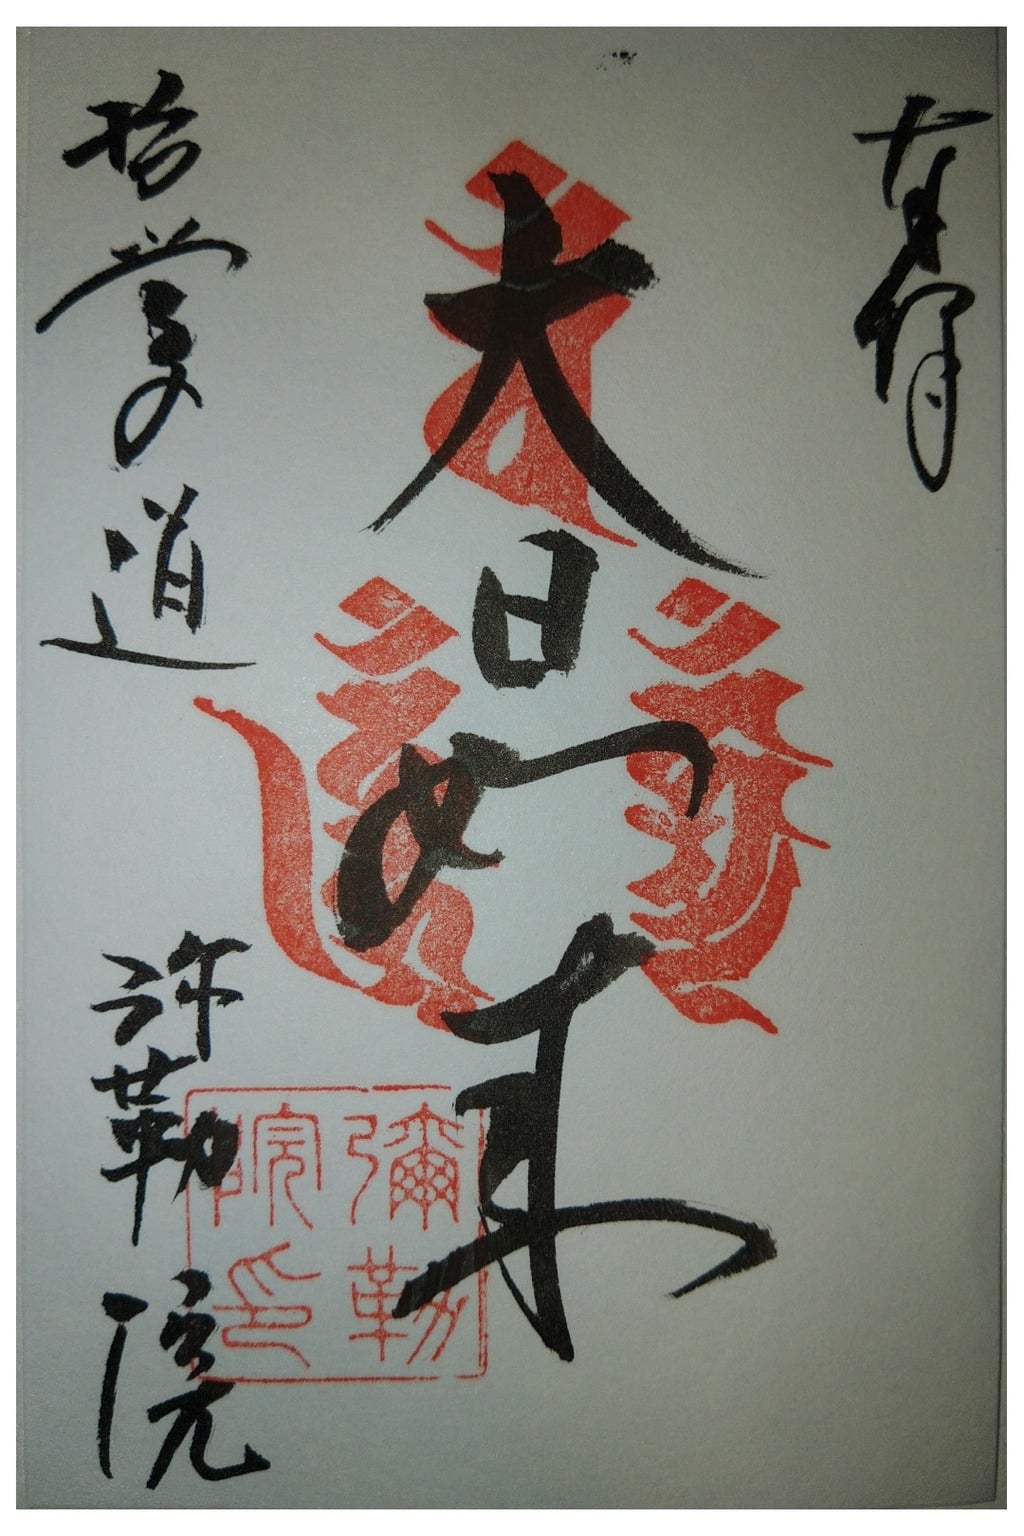 奉拝
大日如来
哲学道 弥勒院
彌勒
院印